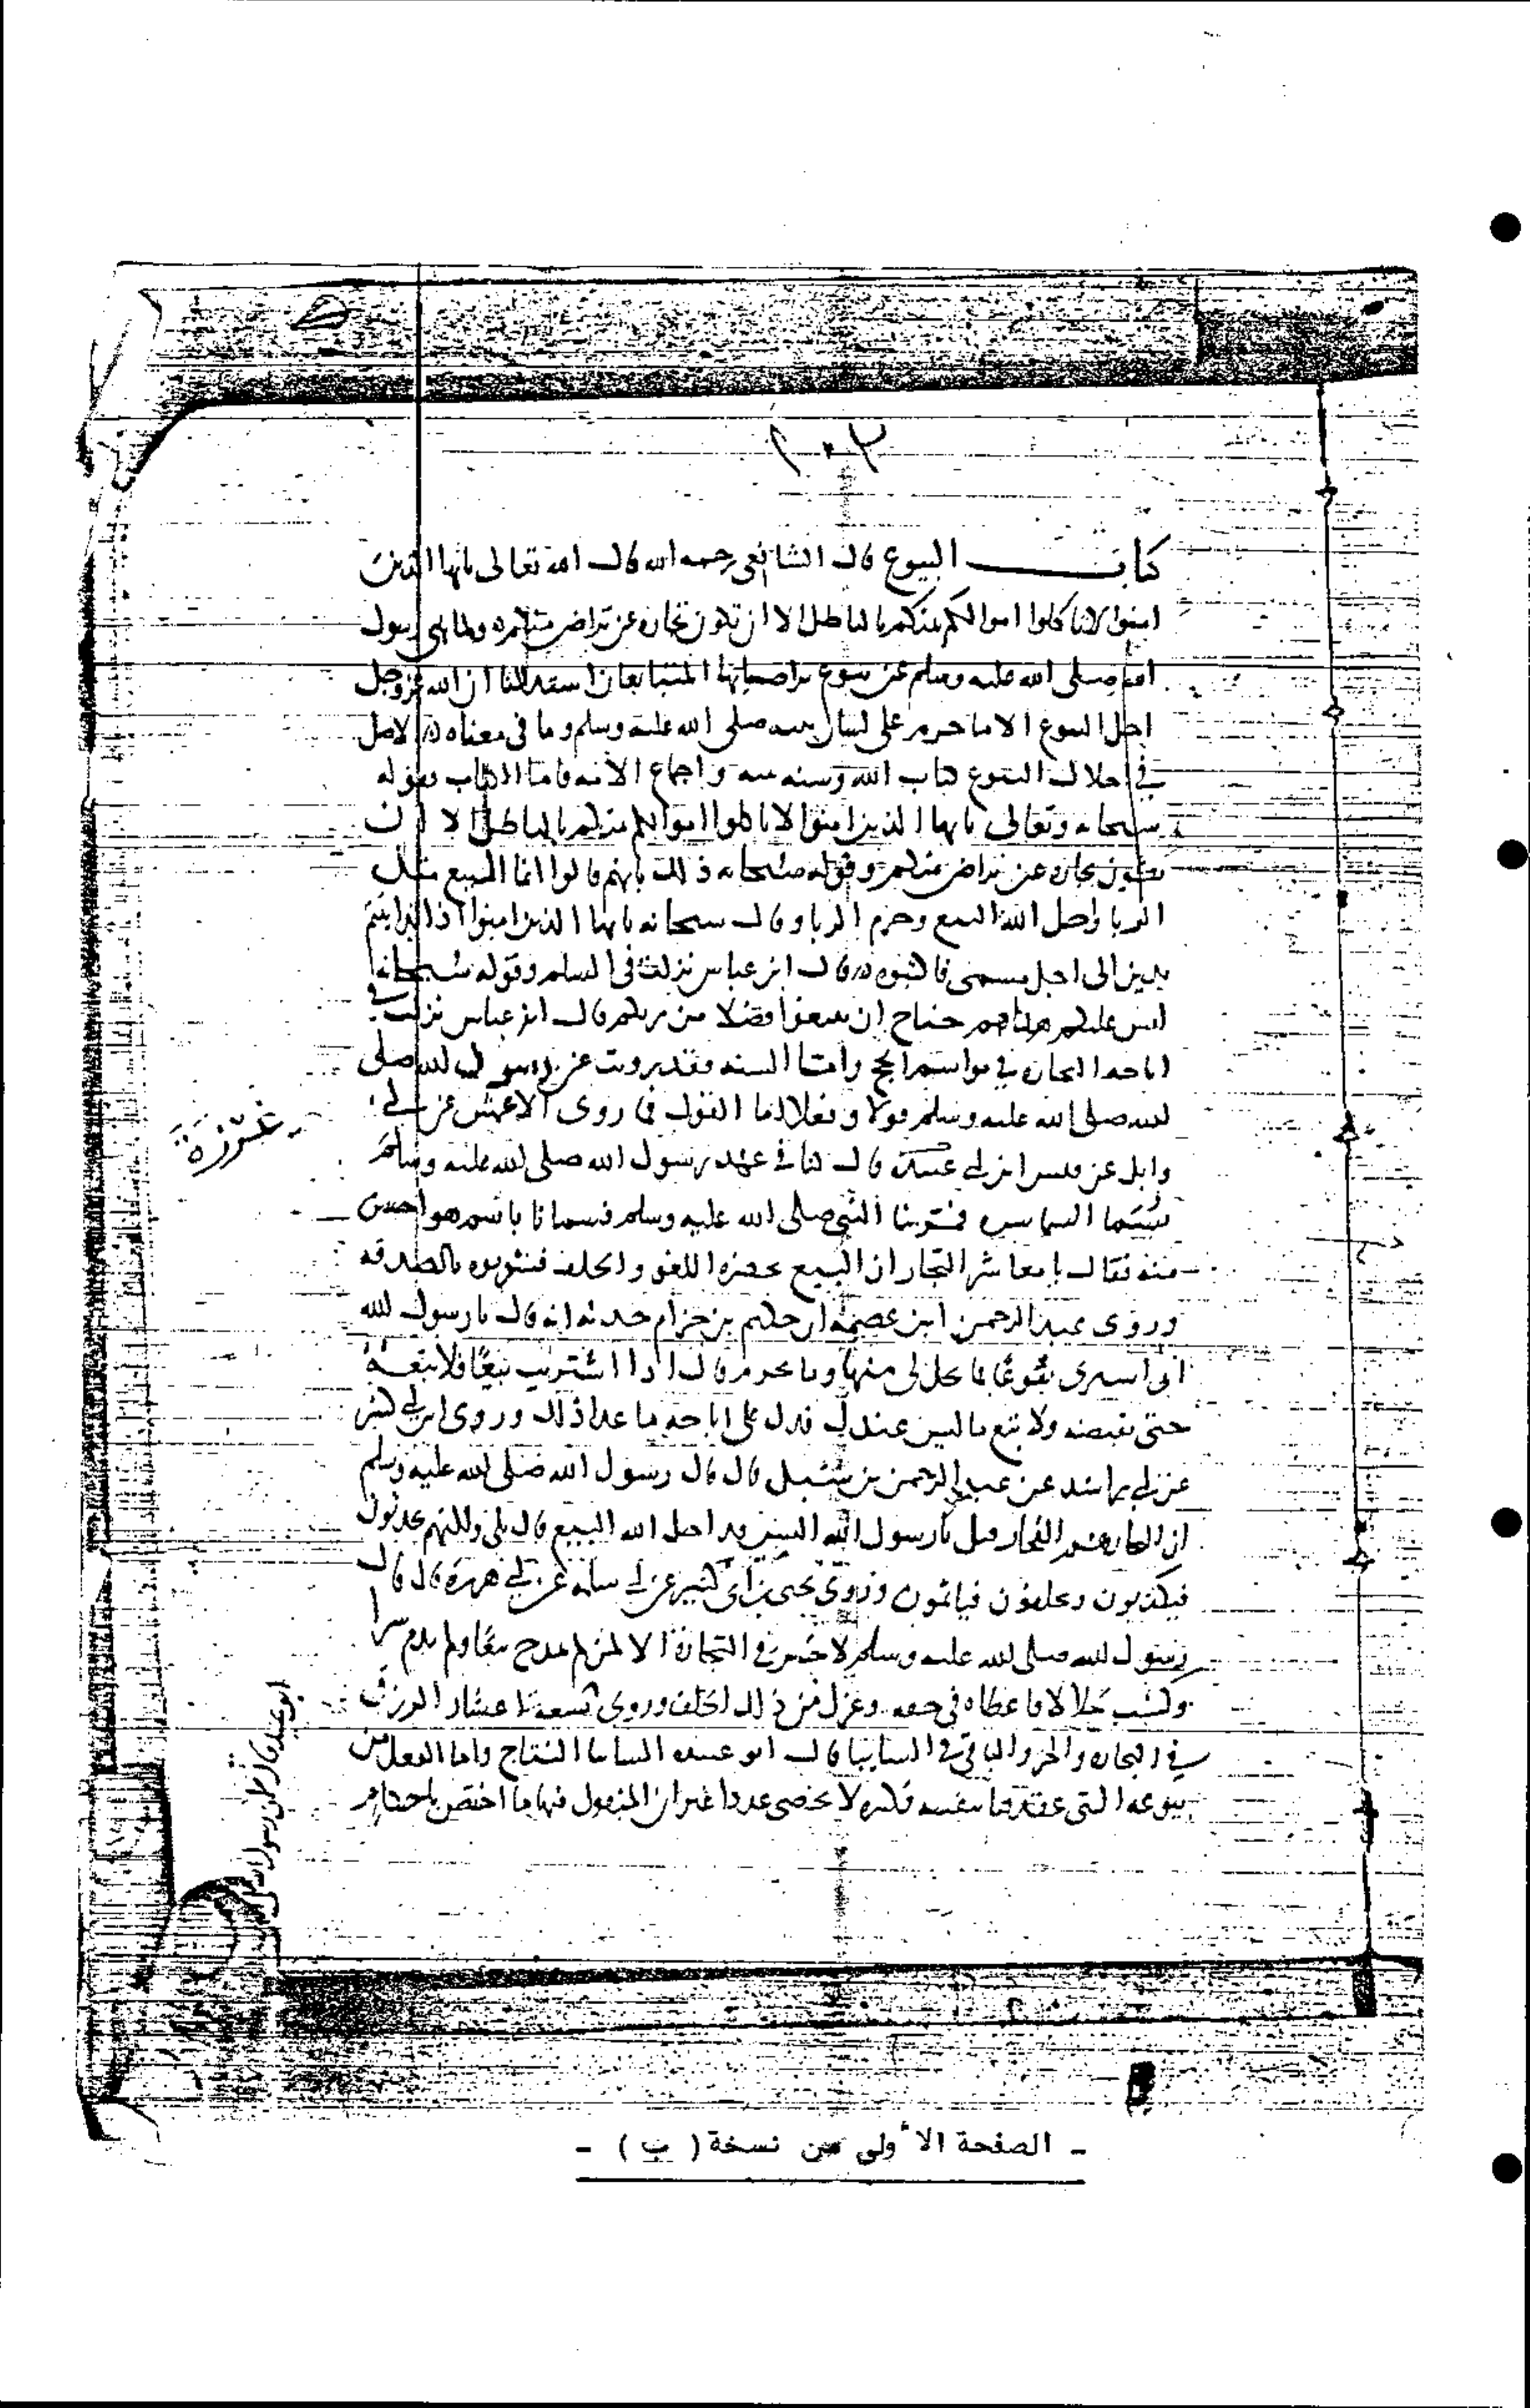 ١٠٢
كتاب البيوع قال الشافعي رحمه الله قال الله تعالى يايها الذين
امنوا لا تاكلوا اموالكم بينكم بالباطل الا ان تكون تجاره عن تراض منكم ولما نهى رسول
الله صلى الله عليه وسلم عن بيوع تراضى بها المتبايعان استدللنا ان الله عز وجل
احل البيوع الا ما حرم على لسان نبيه صلى الله عليه وسلم وما في معناه الاصل
في احلال البيوع كتاب الله وسنه نبيه واجماع الامه فاما الكتاب فقوله
سبحانه وتعالى يايها الذين امنوا لا تاكلوا اموالكم بينكم بالباطل الا ان
تكون تجاره عن تراض منكم وقوله سبحانه ذلك بانهم قالوا انما البيع مثل
الربا واحل الله البيع وحرم الربا وقال سبحانه يايها الذين امنوا اذا تداينتم
بدين الى اجل مسمى فاكتبوه قال ابن عباس نزلت في السلم وقوله سبحانه
ليس عليكم جناح ان تبتغوا فضلا من ربكم قال ابن عباس نزلت في
اباحه التجاره في مواسم الحج واما السنه فقد رويت عن رسول الله صلى
الله صلى الله عليه وسلم قولا وفعلا فاما القول فما روى الاعمش عن ابي
وايل عن قيس ابن ابي غرزة قال كنا في عهد رسول الله صلى الله عليه وسلم
نسما السماسره فمر بنا النبي صلى الله عليه وسلم فسمانا باسم هو احسن
منه فقال يا معاشر التجار ان البيع يحضره اللغو والحلف فشوبوه بالصدقه
وروى عبد الرحمن ابن عصمه ان حكيم بن حزام حدثه انه قال يا رسول الله
اني اشترى بيوعا فما يحل لي منها وما يحرم قال اذا اشتريت بيعا فلا تبعه
حتى تقبضه ولا تبع ما ليس عندك فدل على اباحه ما عدا ذلك وروى ابن ابي كثير
عن ابي راشد عن عبد الرحمن بن شبل قال قال رسول الله صلى الله عليه وسلم
ان التجار هم الفجار قيل يا رسول الله اليس قد احل الله البيع قال بلى ولكنهم يحدثون
فيكذبون ويحلفون فياثمون وروى يحيى بن ابي كثير عن ابي سلمة عن ابي هريرة قال قال
رسول الله صلى الله عليه وسلم لا خير في التجارة الا لمن لم يمدح بيعا ولم يذم شرا
وكسب حلالا فاعطاه في حقه وعزل من ذلك الحلف وروى تسعة اعشار الرزق
في التجاره والجزو الباقي في السابيا قال ابو عبيد السابيا النتاج واما الفعل فمن
بيوعه التي عقدها بنفسه فكثره لا تحصى عددا غير ان المنقول فيها ما اختص باحكام
غرزة
- الصفحة الأولى من نسخة ( ب ) -